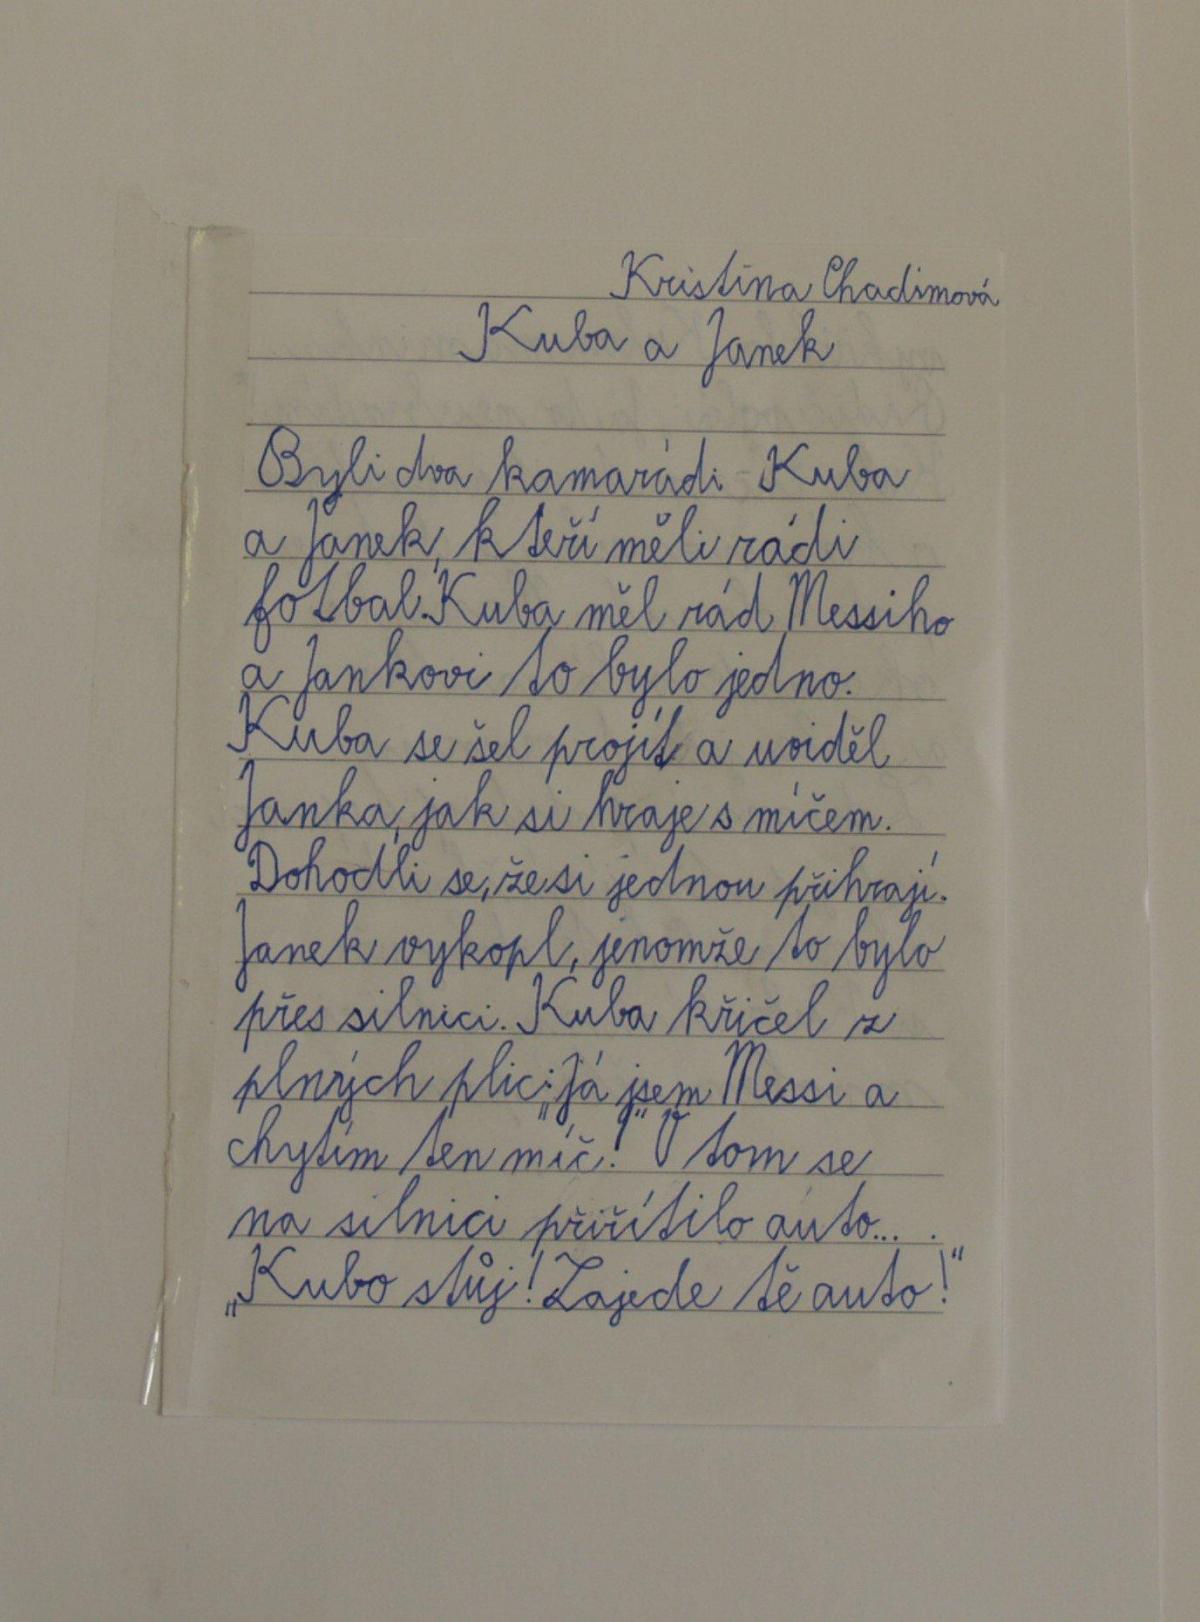 Kristina Chadimová
Kuba a Janek
Byli dva kamarádi Kuba
a Janek, kteří měli rádi
fotbal. Kuba měl rád Messiho
a Jankovi to bylo jedno.
Kuba se šel projít a uviděl
Janka, jak si hraje s míčem.
Dohodli se, že si jednou přihrají.
Janek vykopl, jenomže to bylo
přes silnici. Kuba křičel z
plných plic: „Já jsem Messi a
chytím ten míč!“ V tom se
na silnici přiřítilo auto... .
„Kubo stůj! Zajede tě auto!“